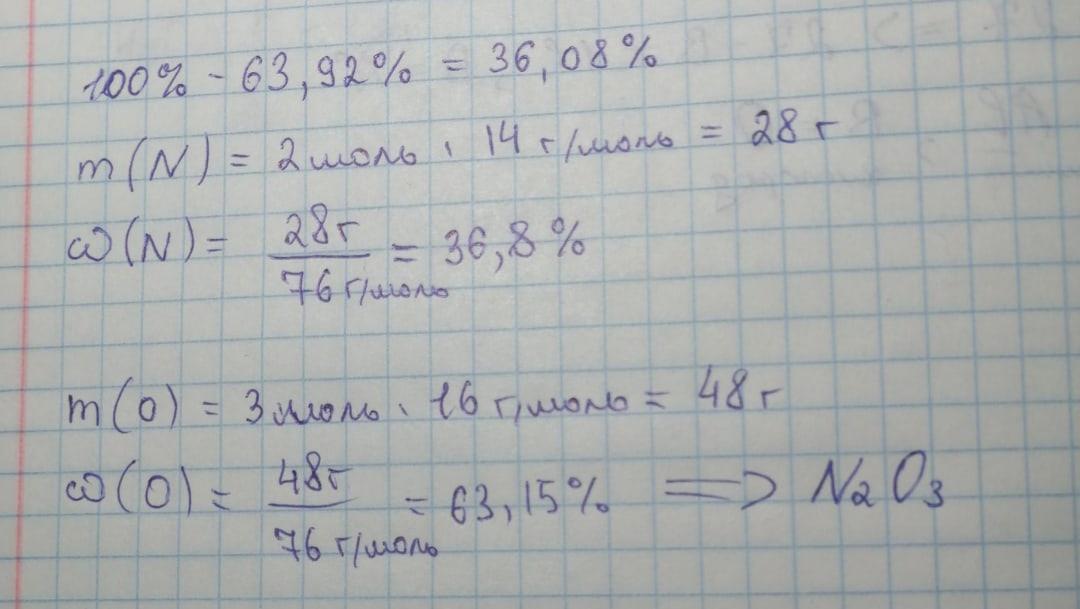 100% - 63,92% = 36,08%
m(N) = 2 моль · 14 г/моль = 28 г
ω(N) = 28г / 76 г/моль = 36,8%
m(O) = 3 моль · 16 г/моль = 48 г
ω(O) = 48г / 76 г/моль = 63,15% => N₂O₃